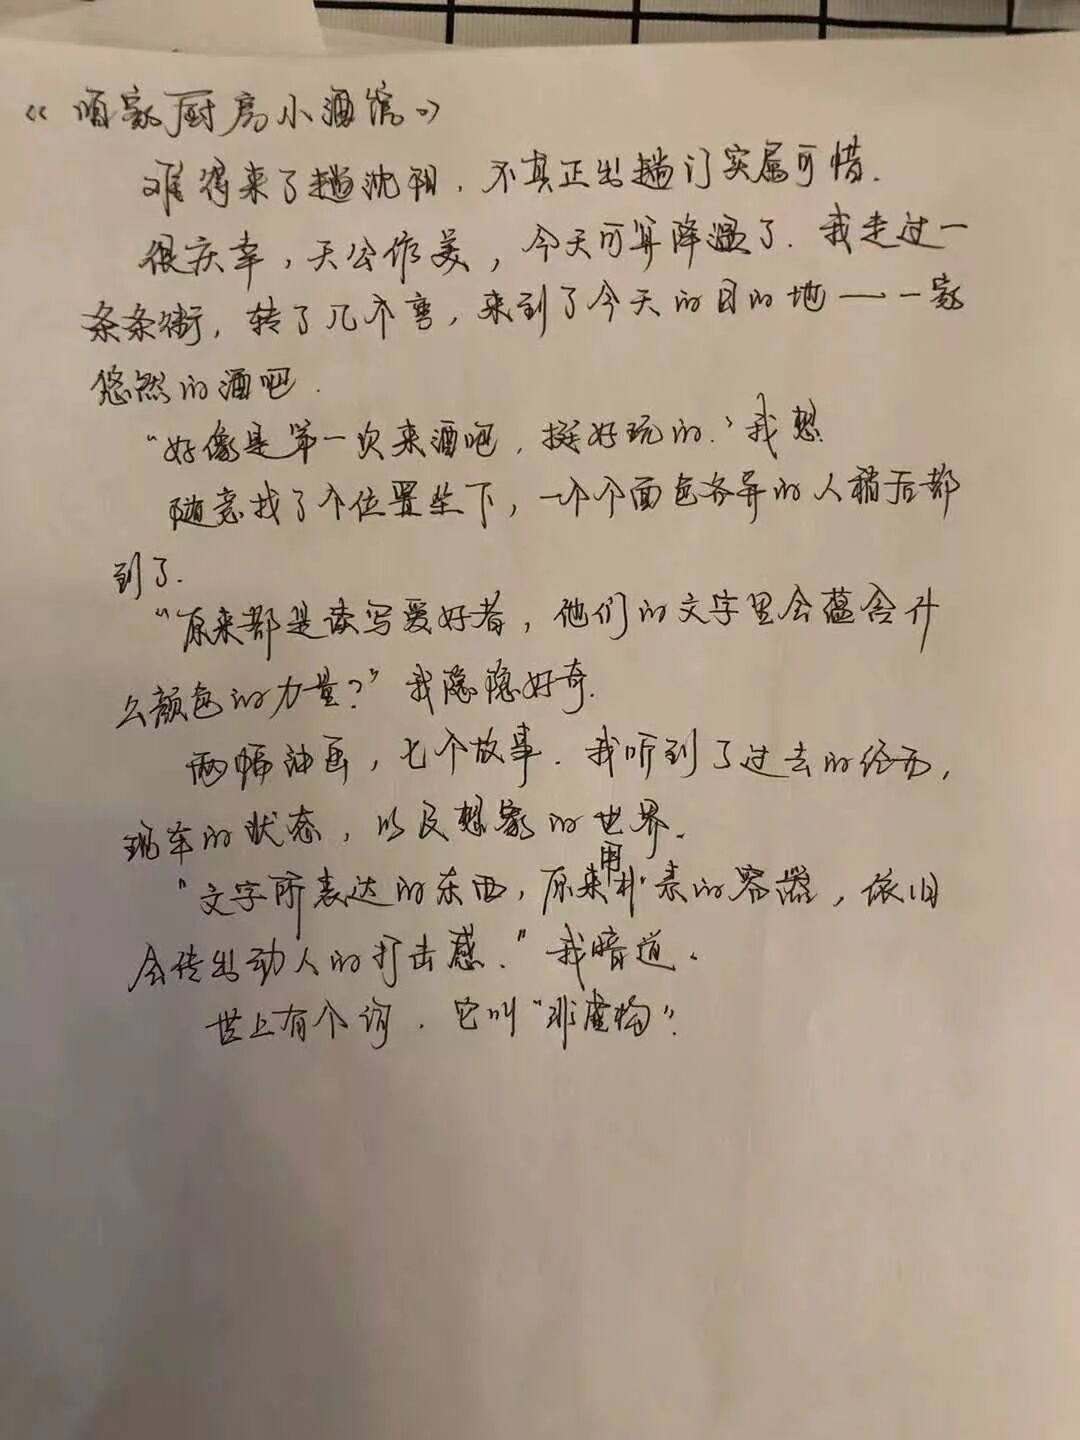 《顺家厨房小酒馆》
难得来了趟沈阳，不真正出趟门实属可惜.
很庆幸，天公作美，今天可算降温了.我走过一
条条街，转了几个弯，来到了今天的目的地——一家
悠然的酒吧.
“好像是第一次来酒吧，挺好玩的.”我想
随意找了个位置坐下，一个个面色各异的人稍后都
到了.
“原来都是读写爱好者，他们的文字里会蕴含什
么颜色的力量？”我隐隐好奇.
两幅油画，七个故事.我听到了过去的经历，
现在的状态，以及想象的世界。
“文字所表达的东西，原来用朴素的容器，依旧
会传出动人的打击感.”我暗道。
世上有个词.它叫“非虚构”.